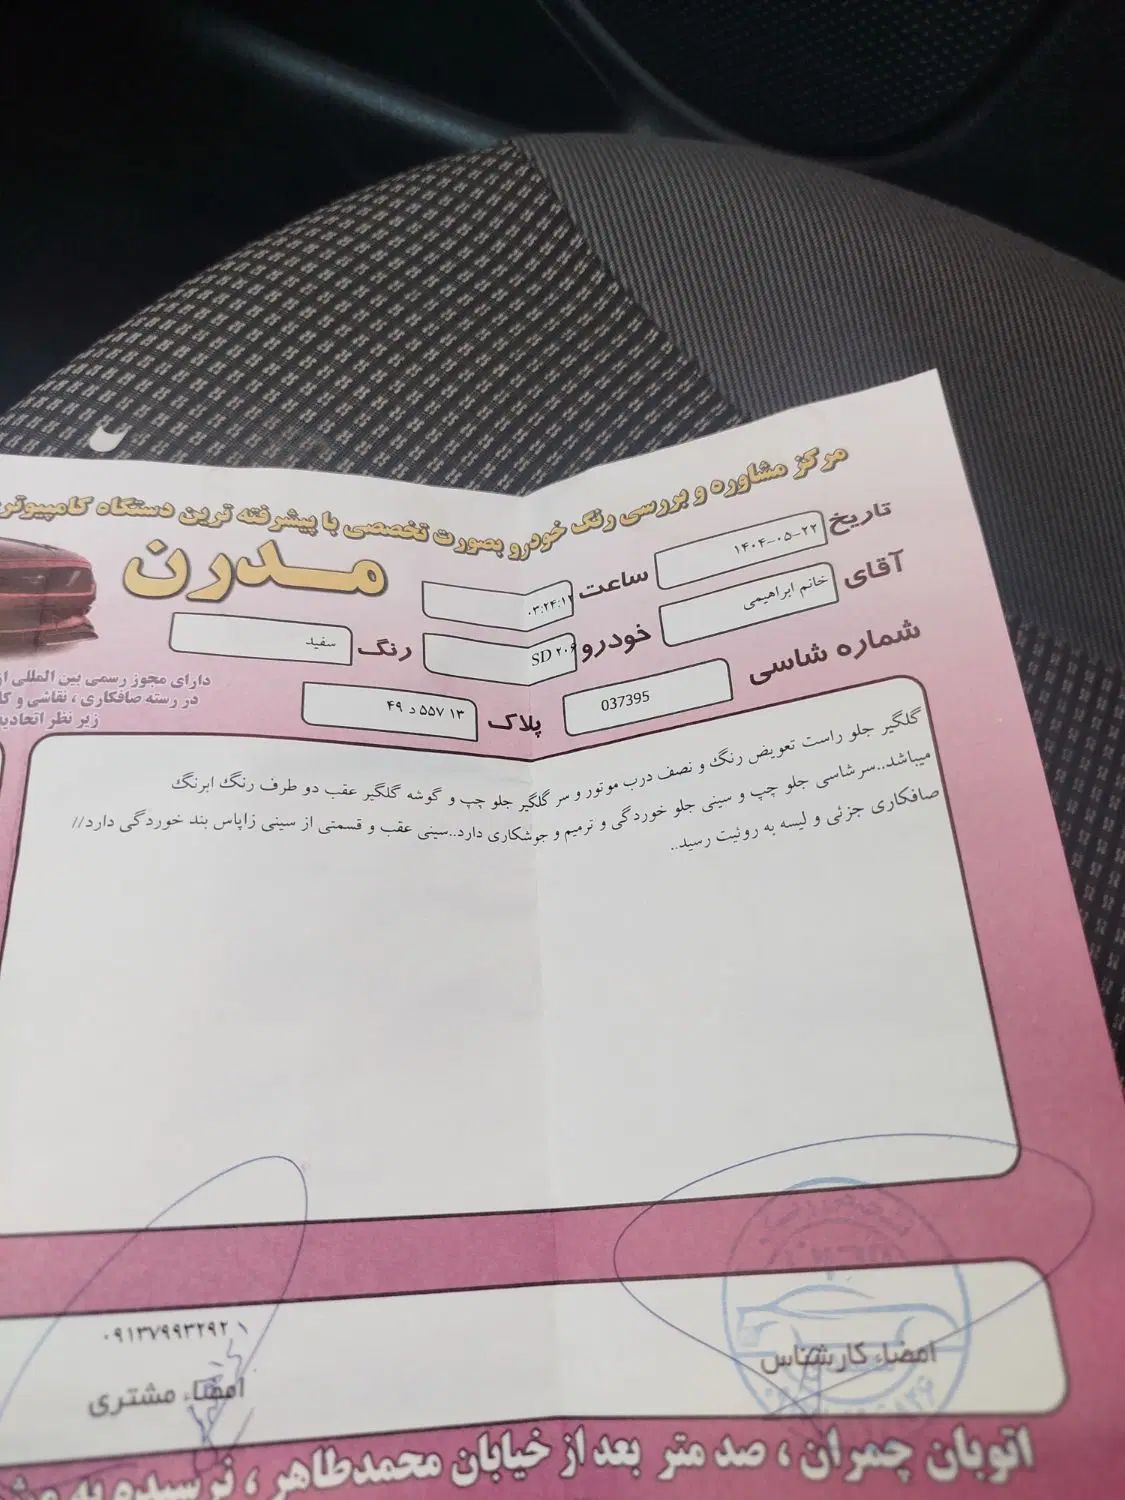 مرکز مشاوره و بررسی رنگ خودرو بصورت تخصصی با پیشرفته ترین دستگاه کامپیوتر
مدرن
تاریخ ۱۴۰۴-۰۵-۲۲
ساعت ۰۳:۲۴:۱۲
آقای خانم ابراهیمی
خودرو SD ۲۰۶
رنگ سفید
شماره شاسی 037395
پلاک ۱۳ ۵۵۷ د ۴۹
دارای مجوز رسمی بین المللی از
در رسته صافکاری ، نقاشی و
زیر نظر اتحادیه
گلگیر جلو راست تعویض رنگ و نصف درب موتور و سر گلگیر جلو چپ و گوشه گلگیر عقب دو طرف رنگ ابرنگ
میباشد..سرشاسی جلو چپ و سینی جلو خوردگی و ترمیم و جوشکاری دارد..سینی عقب و قسمتی از سینی زاپاس بند خوردگی دارد//
صافکاری جزئی و لیسه به روئیت رسید..
امضاء کارشناس
۰۹۱۳۷۹۹۳۲۹۲۱
امضاء مشتری
اتوبان چمران ، صد متر بعد از خیابان محمدطاهر ، نرسیده به